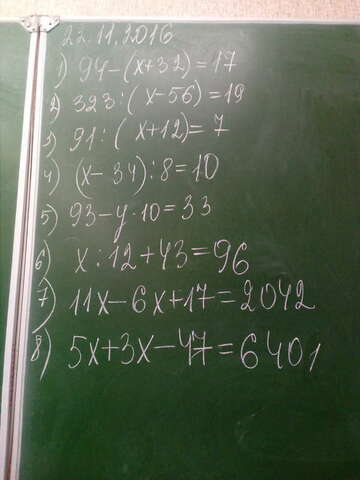 22.11.2016
1) 94-(x+32)=17
2) 323:(x-56)=19
3) 91:(x+12)=7
4) (x-34):8=10
5) 93-y·10=33
6) x:12+43=96
7) 11x-6x+17=2042
8) 5x+3x-47=6401